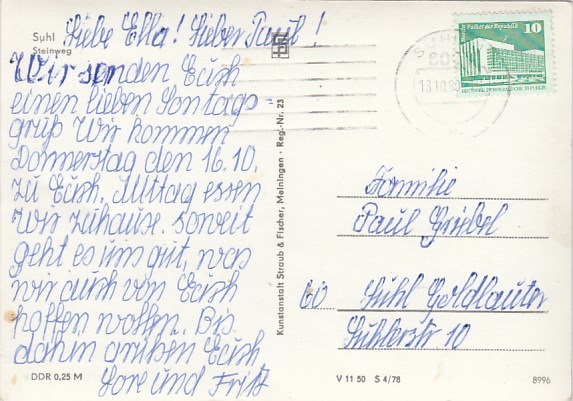 Suhl
Steinweg
Liebe Ella! Lieber Paul!
Wir senden Euch
einen lieben Sontags-
gruß Wir kommen
Donnerstag den 16.10.
zu Euch, Mittag essen
wir zuhause. soweit
geht es uns gut, was
wir auch von Euch
hoffen wollen. Bis
dahin grüßen Euch
Lore und Fritz
DDR 0,25 M
Kunstanstalt Straub & Fischer, Meiningen · Reg.-Nr. 23
Palast der Republik 10
DEUTSCHE DEMOKRATISCHE REPUBLIK
SUHL
13.10.80
Familie
Paul Griebel
Suhl Goldlauter
Suhlerstr 10
V 11 50 S 4/78
8996